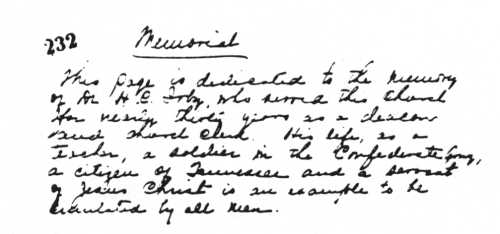 232 Memorial
This page is dedicated to the memory
of Dr H. C. Irby, who served this Church
for nearly thirty years as a deacon
and church Clerk. His life, as a
Teacher, a soldier in the Confederate Army,
a citizen of Tennessee and a servant
of Jesus Christ is an example to be
emulated by all men.